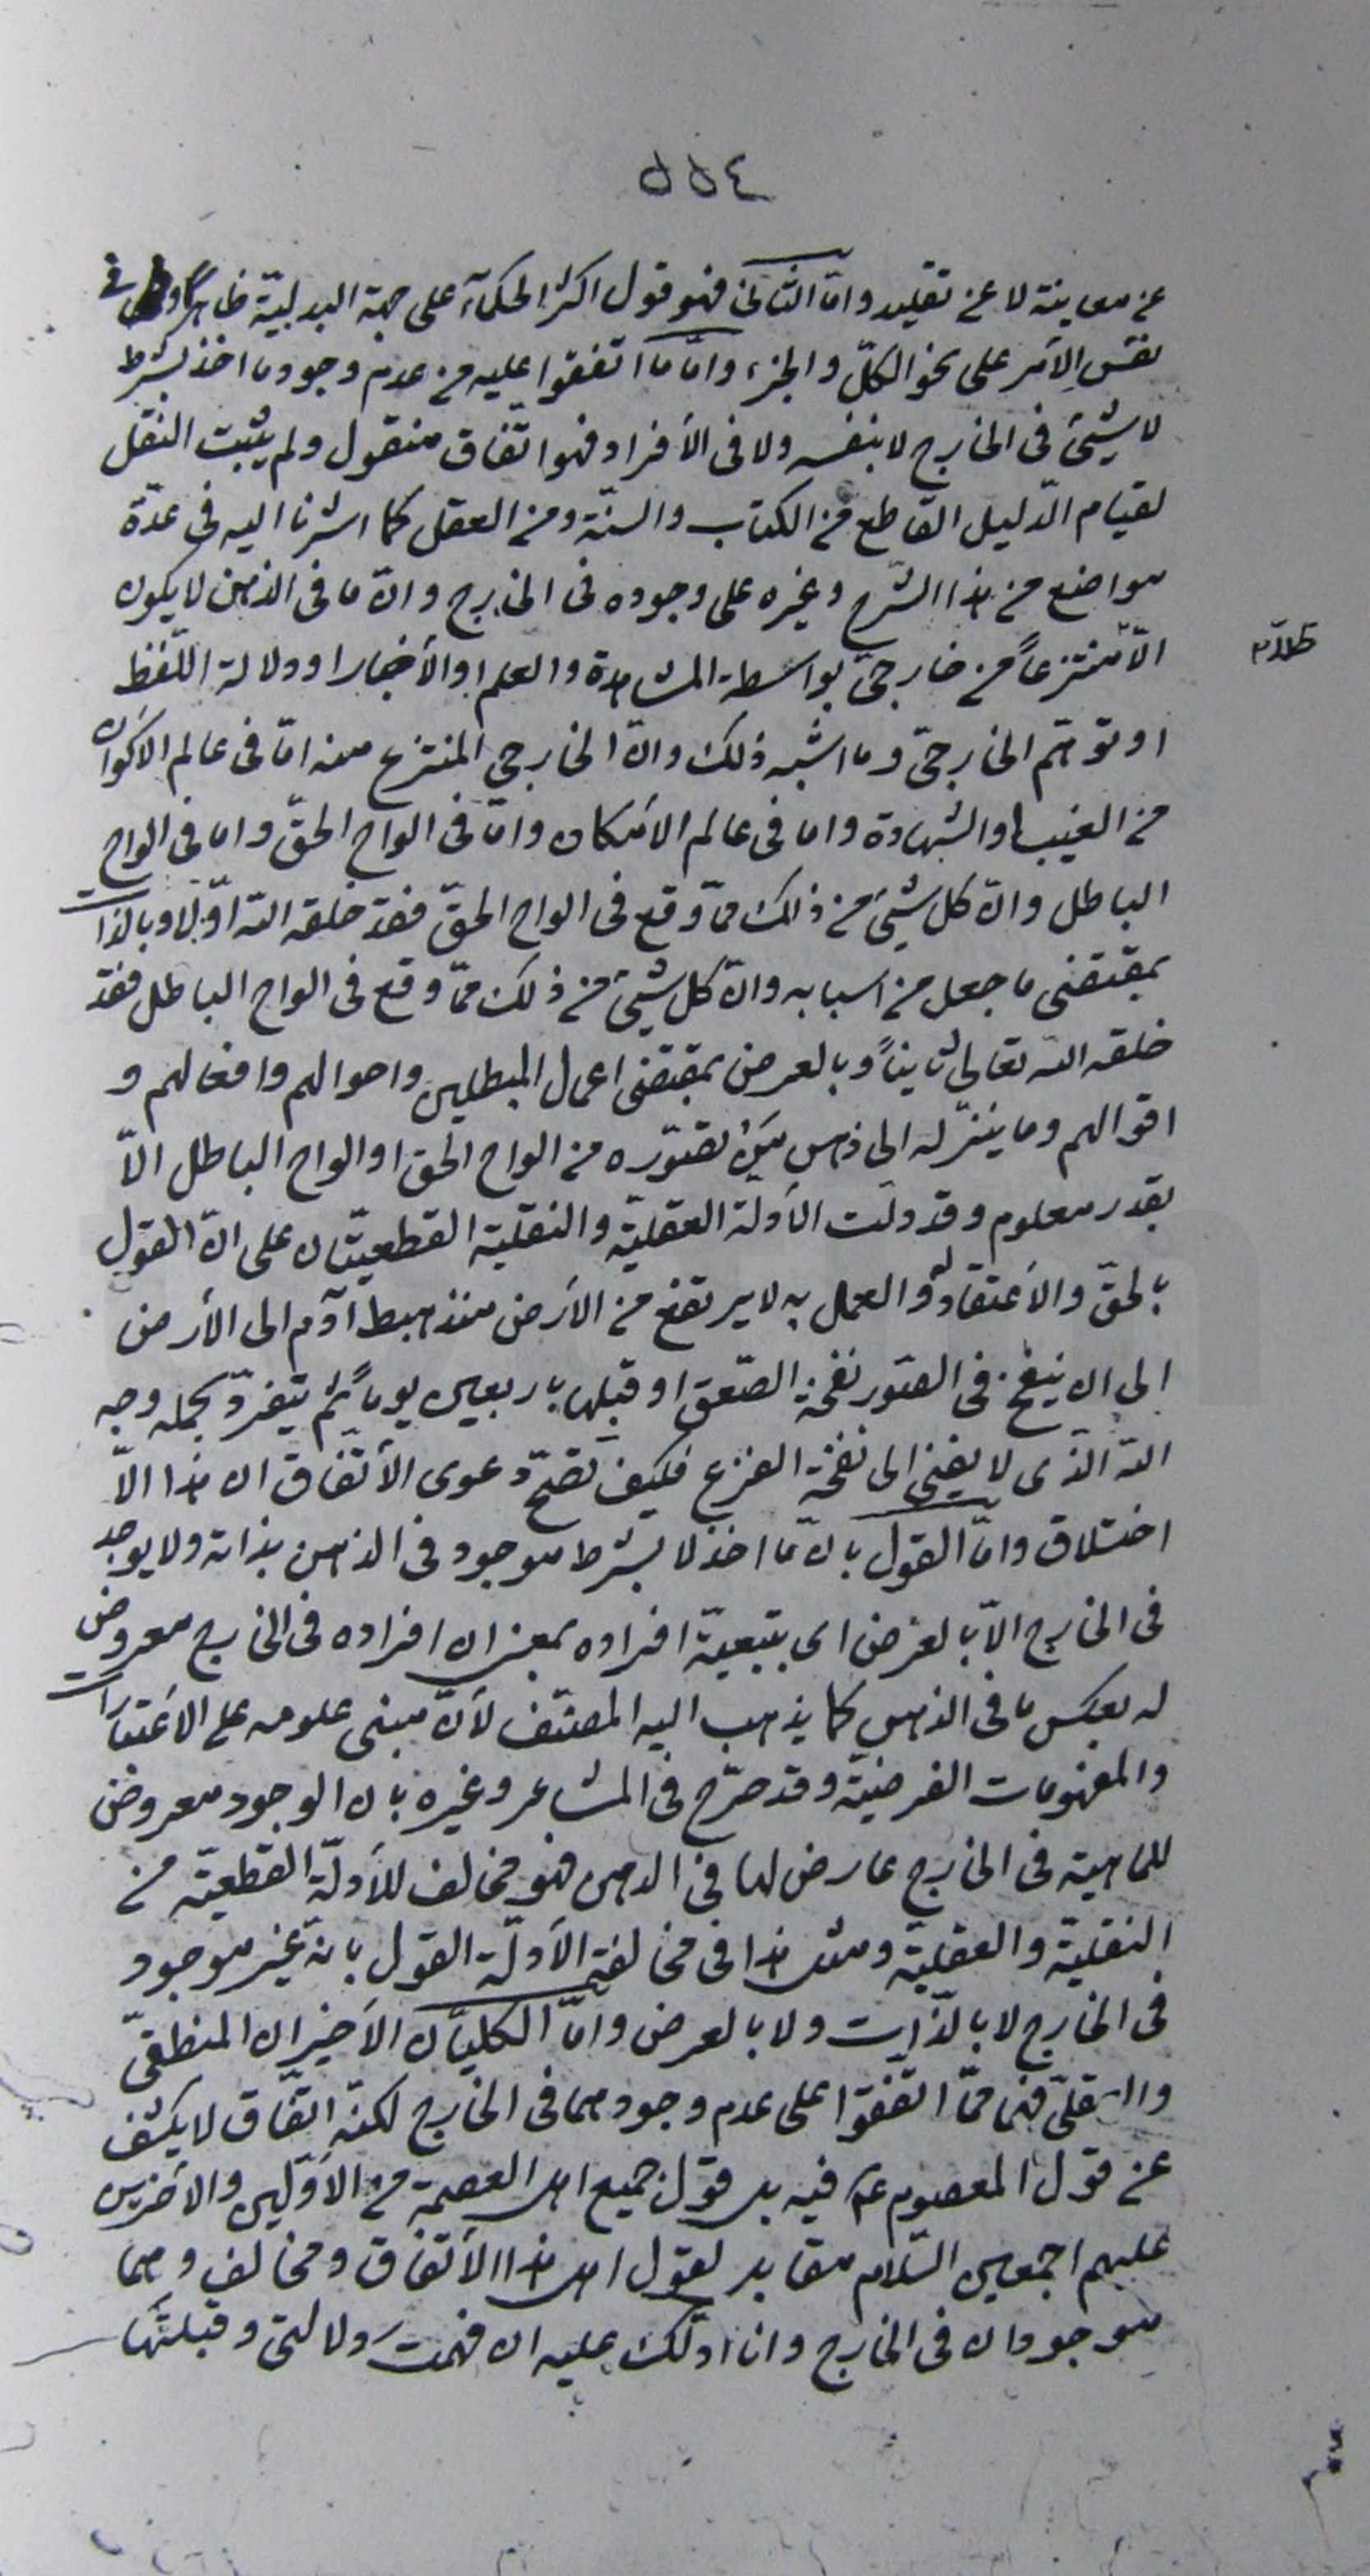 ٥٥٤
عن معاينة لا عن تقليد وامّا الثانى فهو قول اكثر الحكمآء على جهة البدليّة ظاهراً و فى
نفس الأمر على نحو الكلّ والجزء وامّا ما اتفقوا عليه من عدم وجود ما اخذ بشرط
لا شىء فى الخارج لا بنفسه ولا فى الأفراد فهو اتّفاق منقول ولم يثبت النقل
لقيام الدّليل القاطع من الكتاب والسنّة ومن العقل كما اشرنا اليه فى عدّة
مواضع من هذا الشّرح وغيره على وجوده فى الخارج وانّ ما فى الذهن لا يكون
الّا منتزعاً من خارجىّ بواسطة المشاهدة والعلم او الأخبار او دلالة اللّفظ
او توهّم الخارجىّ وما اشبه ذلك وانّ الخارجى المنتزع منه امّا فى عالم الاكوان
من الغيب او الشهادة واما فى عالم الأمكان وامّا فى الواح الحقّ واما فى الواح
الباطل وانّ كل شىء من ذلك ممّا وقع فى الواح الحقّ فقد خلقه اللّه اوّلا وبالذات
بمقتضى ما جعل من اسبابه وانّ كل شىء من ذلك ممّا وقع فى الواح الباطل فقد
خلقه اللّه تعالى ثانياً وبالعرض بمقتضى اعمال المبطلين واحوالهم وافعالهم و
اقوالهم وما ينزّله الى ذهن تصوّره من الواح الحق او الواح الباطل الّا
بقدر معلوم وقد دلّت الأدلة العقليّة والنقلية القطعيّتان على انّ القول
بالحقّ والأعتقاد له والعمل به لا يرتفع من الأرض منذ هبط آدم الى الأرض
الى ان ينفخ فى الصّور نفخة الصّعق او قبلها باربعين يوماً ثم يتفرّد بحمله وجه
اللّه الّذى لا يفنى الى نفخة الفزع فكيف تصحّ دعوى الأتّفاق ان هذا الّا
اختلاق وامّا القول بان ما اخذ لا بشرط موجود فى الذهن بذاته ولا يوجد
فى الخارج الّا بالعرض اى بتبعيّة افراده بمعنى ان افراده فى الخارج معروض
له بعكس ما فى الذهن كما يذهب اليه المصنّف لأنّ مبنى علومه على الاعتبارات
والمفهومات الفرضيّة وقد صرّح فى المشاعر وغيره بان الوجود معروض
للماهية فى الخارج عارض لها فى الذهن فهو مخالف للأدلّة القطعيّة من
النقليّة والعقليّة ومثل هذا فى مخالفة الأدلّة القول بانه غير موجود
فى الخارج لا بالذّات ولا بالعرض وامّا الكليّان الأخيران المنطقىّ
والعقلىّ فهما ممّا اتّفقوا على عدم وجودهما فى الخارج لكنّه اتّفاق لا يكشف
عن قول المعصوم عم فيه بل قول جميع اهل العصمة من الأوّلين والأخرين
عليهم اجمعين السّلام مقابل لقول اهل هذا الأتّفاق ومخالف وهما
موجودان فى الخارج وانا ادلّك عليه ان فهمت دلالتى وقبلتها